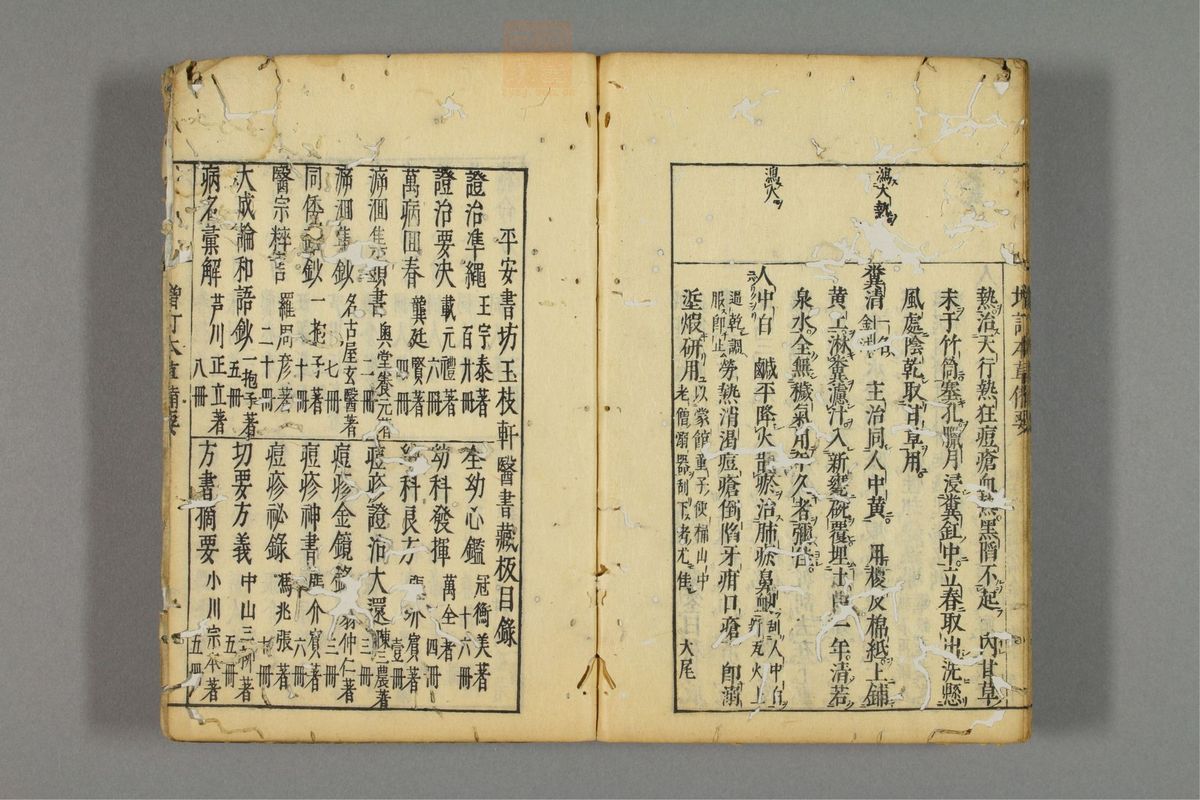 增訂本草備要
瀉大熱
瀉火
熱治天行熱狂痘瘡血熱黑陷不起 內甘草
末于竹筒塞孔臘月浸糞缸中立春取出洗懸
風處陰乾取甘草用
糞清 主治同人中黃 用椶皮棉紙上鋪
黃土淋糞濾汁入新甕碗覆埋土中一年清若
泉水全無穢氣用年久者彌佳
人中白 鹹平降火散瘀治肺瘀鼻衄 刮人中白
過乾調
服即止 勞熱消渴痘瘡倒陷牙疳口瘡 即溺
垽煅研用 以蒙館童子便桶山中
老僧溺器刮下者尤佳 大尾
平安書坊玉枝軒醫書藏板目錄
證治準繩 王宇泰著 百廿冊
證治要決 戴元禮著 六冊
萬病回春 龔廷賢著 四冊
濟洄集頭書 二冊
濟洄集鈔 名古屋玄醫著 七冊
同俗鈔 一抱子著 十冊
醫宗粹言 羅周彥著 二十冊
大成論和語鈔 一抱子著 五冊
病名彙解 芦川正立著 八冊
全幼心鑑 冠衡美著 十六冊
幼科發揮 萬全著 四冊
幼科良方 寶著 壹冊
痘疹證治大還 陳三農著 三冊
痘疹金鏡錄 翁仲仁著 三冊
痘疹神書 介賓著 六冊
痘疹祕錄 馮兆張著 冊
切要方義 中山三柳著 五冊
方書摘要 小川宗本著 五冊
增訂本草備要